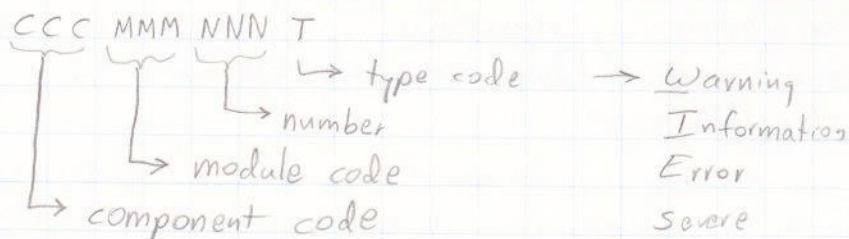 CCC MMM NNN T
type code → Warning
number Information
module code Error
component code Severe